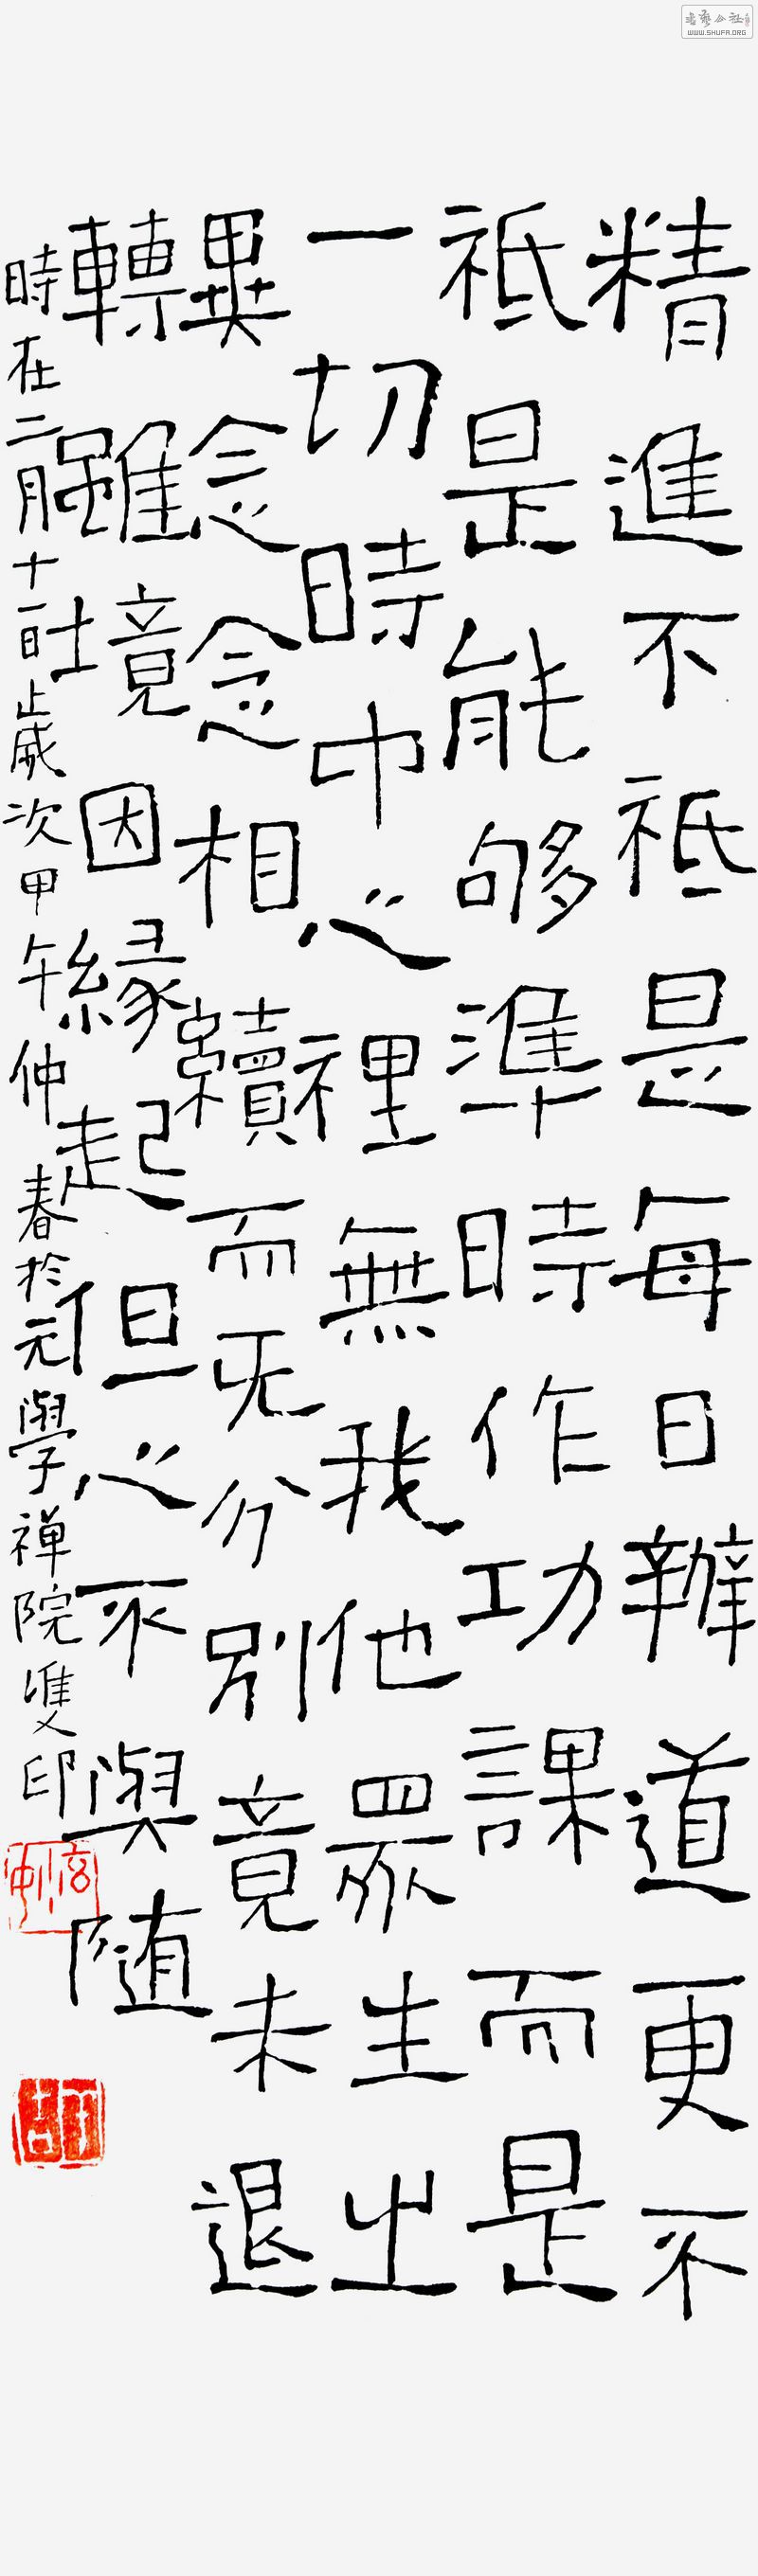 精進不祗是每日辦道更不
祗是能够準時作功課而是
一切時中心裡無我他眾生之
異念念相續而无分別竟未退
轉雖境因緣起但心不與隨
時在二月十一日歲次甲午仲春於元學禅院雙印
WWW.SHUFA.ORG